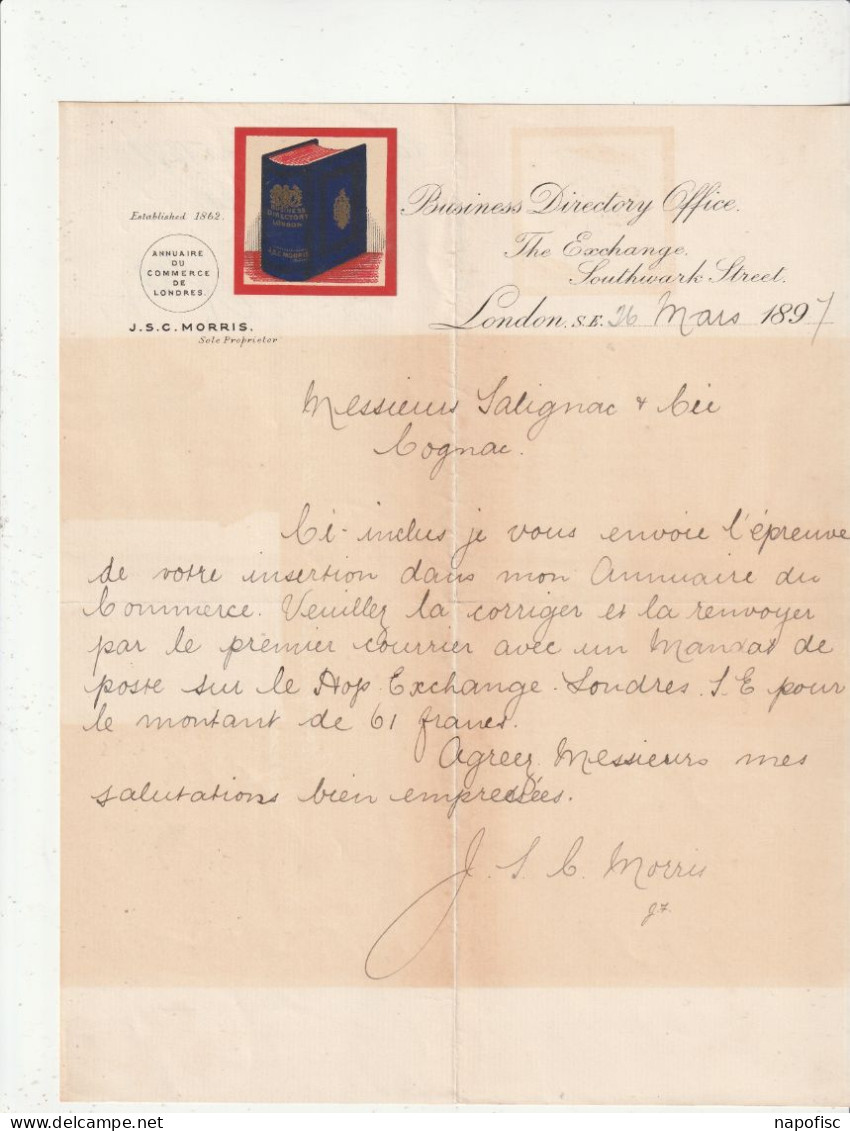 Established 1862.
ANNUAIRE
DU
COMMERCE
DE
LONDRES.
J.S.C. MORRIS.
Sole Proprietor
BUSINESS
DIRECTORY
LONDON
J.S.C. MORRIS
Business Directory Office.
The Exchange.
Southwark Street.
London, S.E. 26 Mars 1897
Messieurs Salignac & Cie
Cognac.
Ci-inclus je vous envoie l'épreuve
de votre insertion dans mon Annuaire du
Commerce. Veuillez la corriger et la renvoyer
par le premier courrier avec un Mandat de
poste sur le Hop Exchange. Londres. S.E pour
le montant de 61 francs.
Agreez Messieurs mes
salutations bien empressées.
J. S. C. Morris
napofisc